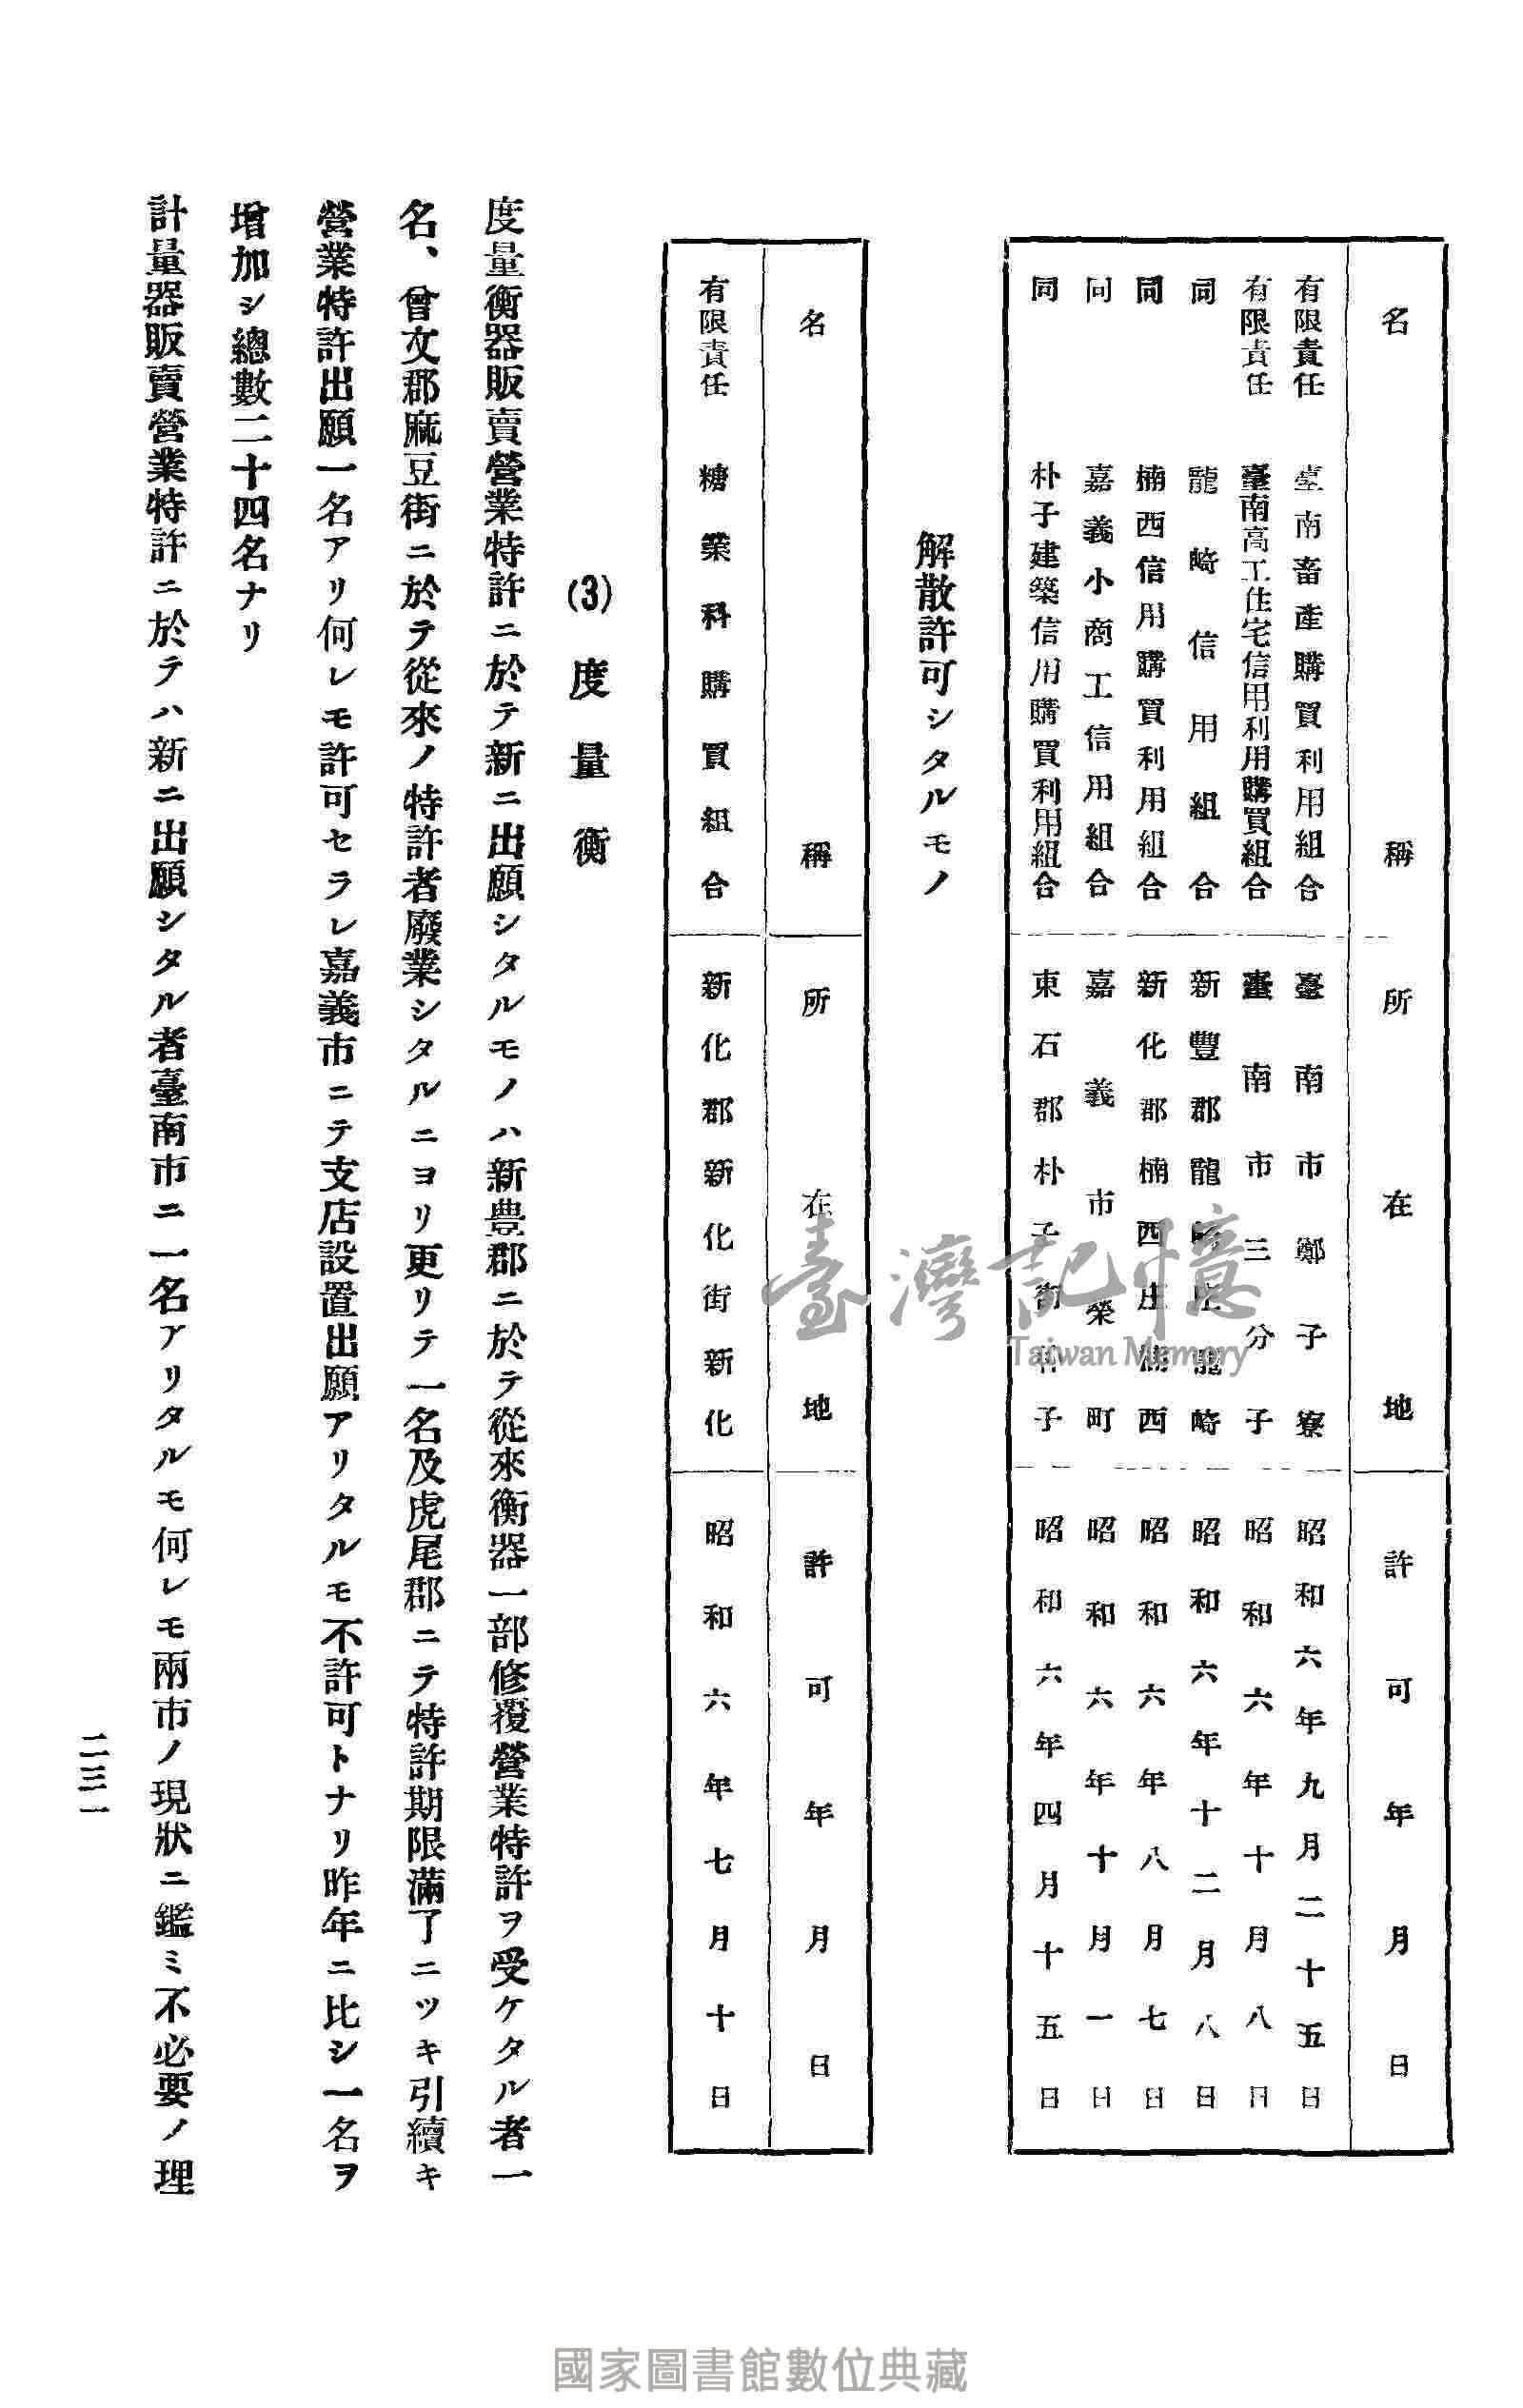 名稱 所在地 許可年月日
有限責任 臺南畜產購買利用組合 臺南市鄭子寮 昭和六年九月二十五日
有限責任 臺南高工住宅信用利用購買組合 臺南市三分子 昭和六年十月八日
同 龍崎信用組合 新豐郡龍崎庄龍崎 昭和六年十二月八日
同 楠西信用購買利用組合 新化郡楠西庄楠西 昭和六年八月七日
同 嘉義小商工信用組合 嘉義市榮町 昭和六年十月一日
同 朴子建築信用購買利用組合 東石郡朴子街朴子 昭和六年四月十五日
解散許可シタルモノ
名稱 所在地 許可年月日
有限責任 糖業科購買組合 新化郡新化街新化 昭和六年七月十日
(3) 度量衡
度量衡器販賣營業特許ニ於テ新ニ出願シタルモノハ新豊郡ニ於テ從來衡器一部修覆營業特許ヲ受ケタル者一
名、曾文郡麻豆街ニ於テ從來ノ特許者廢業シタルニヨリ更リテ一名及虎尾郡ニテ特許期限滿了ニツキ引續キ
營業特許出願一名アリ何レモ許可セラレ嘉義市ニテ支店設置出願アリタルモ不許可トナリ昨年ニ比シ一名ヲ
增加シ總數二十四名ナリ
計量器販賣營業特許ニ於テハ新ニ出願シタル者臺南市ニ一名アリタルモ何レモ兩市ノ現狀ニ鑑ミ不必要ノ理
二三一
臺灣記憶
Taiwan Memory
國家圖書館數位典藏